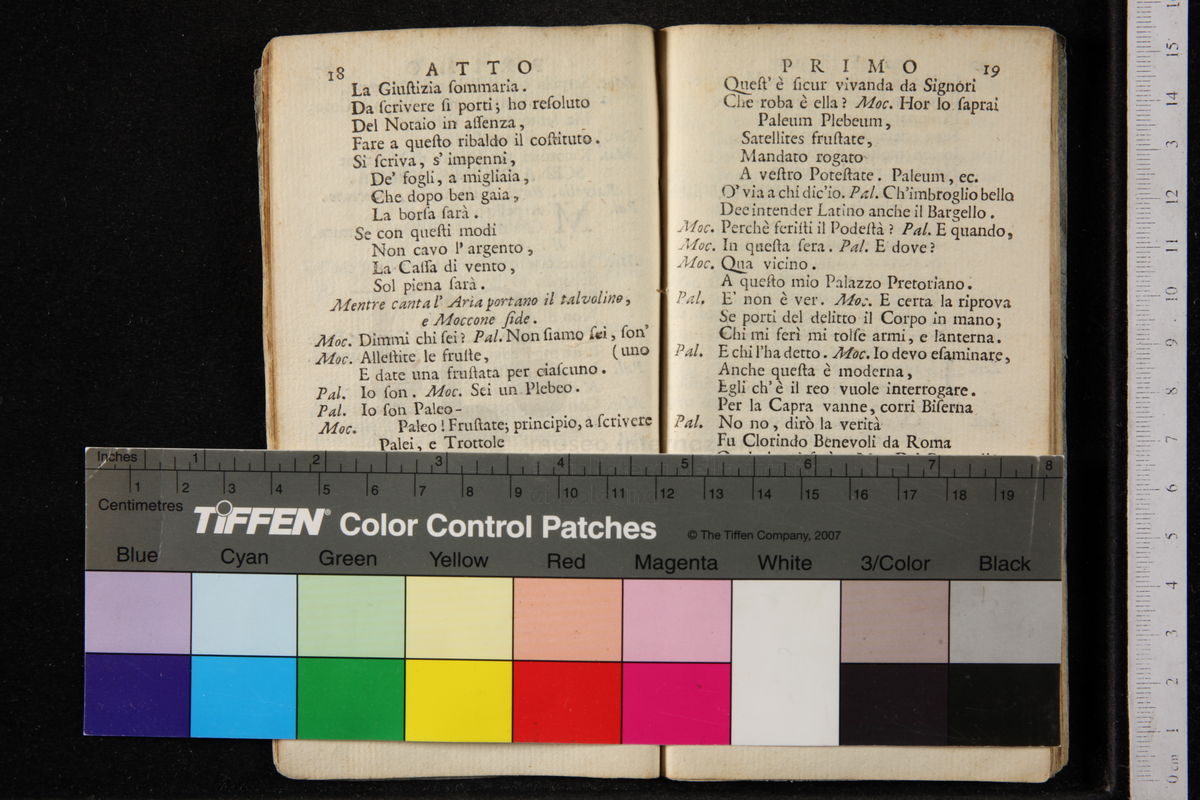 18 ATTO
La Giuſtizia ſommaria.
Da ſcrivere ſi porti; ho reſoluto
Del Notaio in aſſenza,
Fare a queſto ribaldo il coſtituto.
Si ſcriva, s' impenni,
De' fogli, a migliaia,
Che dopo ben gaia,
La borſa ſarà.
Se con queſti modi
Non cavo l' argento,
La Caſſa di vento,
Sol piena ſarà.
Mentre canta l' Aria portano il talvolino,
e Moccone ſide.
Moc. Dimmi chi ſei? Pal. Non ſiamo ſei, ſon'
(uno
Moc. Alleſtite le fruſte,
E date una fruſtata per ciaſcuno.
Pal. Io ſon. Moc. Sei un Plebeo.
Pal. Io ſon Paleo-
Moc. Paleo! Fruſtate; principio, a ſcrivere
Palei, e Trottole
PRIMO 19
Queſt' è ſicur vivanda da Signori
Che roba è ella? Moc. Hor lo ſaprai
Paleum Plebeum,
Satellites fruſtate,
Mandato rogato
A veſtro Poteſtate. Paleum, ec.
O' via a chi dic'io. Pal. Ch'imbroglio bello
Dee intender Latino anche il Bargello.
Moc. Perchè feriſti il Podeſtà? Pal. E quando,
Moc. In queſta ſera. Pal. E dove?
Moc. Qua vicino.
A queſto mio Palazzo Pretoriano.
Pal. E' non è ver. Moc. E certa la riprova
Se porti del delitto il Corpo in mano;
Chi mi ferì mi tolſe armi, e lanterna.
Pal. E chi l'ha detto. Moc. Io devo eſaminare,
Anche queſta è moderna,
Egli ch' è il reo vuole interrogare.
Per la Capra vanne, corri Biſerna
Pal. No no, dirò la verità
Fu Clorindo Benevoli da Roma
Inches 1 2 3 4 5 6 7 8
1 2 3 4 5 6 7 8 9 10 11 12 13 14 15 16 17 18 19
Centimetres
TIFFEN® Color Control Patches © The Tiffen Company, 2007
Blue Cyan Green Yellow Red Magenta White 3/Color Black